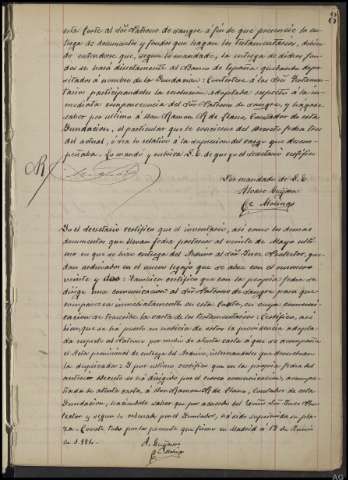 esta Corte al Sor Patrono de sangre á fin de que presencie la en-
trega de documentos y fondos que hagan los testamentarios, debien-
do entenderse que, segun lo mandado, la entrega de dichos fon-
dos se hará directamente al Banco de España quedando depo-
sitados á nombre de la Fundacion: Contestese á los Sres Testamen-
tarios participandoles la resolucion adoptada respecto á la in-
mediata comparecencia del Sor Patrono de sangre, y hagase
saber por ultimo á Don Ramon R. de Llano, Contador de esta
Fundacion, el particular que le concierne del decreto fecha tres
del actual, ó sea lo relativo á la supresion del cargo que desem-
peñaba. Lo mandó y rubrica S.E. de que yo el Secretario certifico
Por mandado de S.E.
Alvaro Guijarro
de Molina
Yo el Secretario certifico que el inventario, asi como los demas
documentos que llevan fecha posterior al veinte de Mayo ulti-
mo en que se hizo entrega del Archivo al Sor Juez Protector, que-
dan ordenados en el nuevo legajo que se abre con el numero
veinte y dos. Tambien certifico que con la propia fecha se
dirige una comunicacion al Sor Patrono de sangre para que
comparezca inmediatamente en esta Corte, en cuya comuni-
cacion se trascribe la carta de los testamentarios: Certifico, asi
bien que se ha puesto en noticia de estos la providencia adopta-
da respecto al Patrono por medio de atenta carta á que se acompaña
el Acta provisional de entrega del Archivo, interesandoles que devuelvan
la duplicada: Y por ultimo certifico que en la propia fecha del
anterior decreto se ha dirigido por el correo comunicacion, acompa-
ñada de atenta carta á Don Ramon R. de Llano, Contador de esta
Fundacion, haciendole saber que por acuerdo del Excmo Sor Juez Pro-
tector y segun lo ordenado por el Fundador, ha sido suprimida su pla-
za. Consta todo por la presente que firmo en Madrid á 12 de Junio
de 1884.
A. Guijarro
de Molina